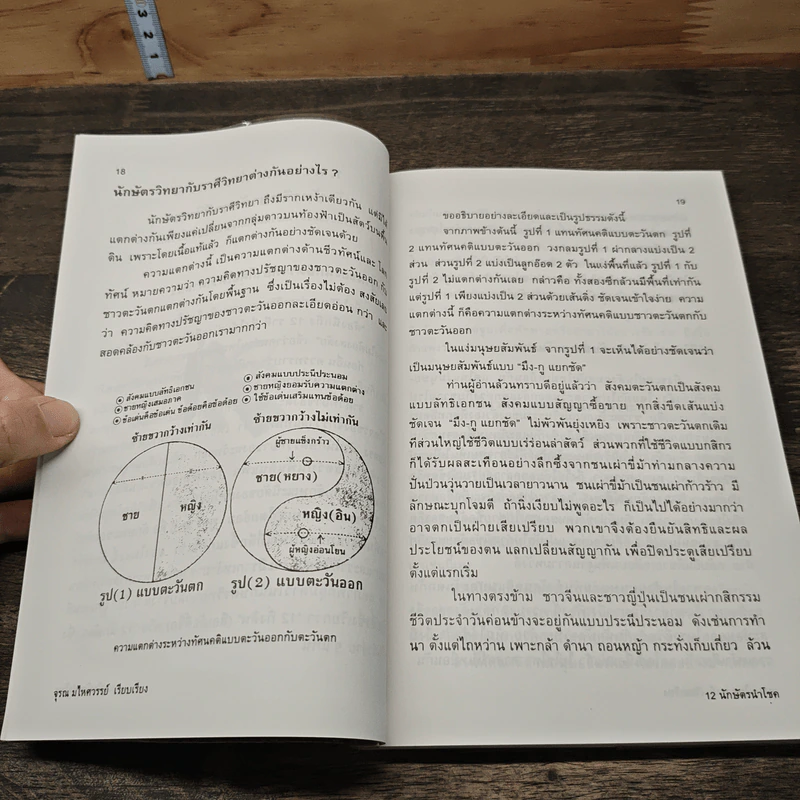 3
2
1
18
นักษัตรวิทยากับราศีวิทยาต่างกันอย่างไร ?
นักษัตรวิทยากับราศีวิทยา ถึงมีรากเหง้าเดียวกัน แต่มีข้อ
แตกต่างกันเพียงแค่เปลี่ยนจากกลุ่มดาวบนท้องฟ้าเป็นสัตว์บนพื้น
ดิน เพราะโดยเนื้อแท้แล้ว ก็แตกต่างกันอย่างชัดเจนด้วย
ความแตกต่างนี้ เป็นความแตกต่างด้านชีวทัศน์และ โลก
ทัศน์ หมายความว่า ความคิดทางปรัชญาของชาวตะวันออก กับ
ชาวตะวันตกแตกต่างกันโดยพื้นฐาน ซึ่งเป็นเรื่องไม่ต้อง สงสัยเลย
ว่า ความคิดทางปรัชญาของชาวตะวันออกละเอียดอ่อน กว่า และ
สอดคล้องกับชาวตะวันออกเรามากกว่า
สังคมแบบลัทธิเอกชน
ชายหญิงเสมอภาค
ข้อเด่นคือข้อเด่น ข้อด้อยคือข้อด้อย
ซ้ายขวากว้างเท่ากัน
ชาย
หญิง
รูป(1) แบบตะวันตก
สังคมแบบประนีประนอม
ชายหญิงยอมรับความแตกต่าง
ใช้ข้อเด่นเสริมแทนข้อด้อย
ซ้ายขวากว้างไม่เท่ากัน
ผู้ชายแข็งกร้าว
ชาย(หยาง)
หญิง(อิน)
ผู้หญิงอ่อนโยน
รูป(2) แบบตะวันออก
ความแตกต่างระหว่างทัศนคติแบบตะวันออกกับตะวันตก
จุรณ มไหศวรรย์ เรียบเรียง
19
ขออธิบายอย่างละเอียดและเป็นรูปธรรมดังนี้
จากภาพข้างต้นนี้ รูปที่ 1 แทนทัศนคติแบบตะวันตก รูปที่
2 แทนทัศนคติแบบตะวันออก วงกลมรูปที่ 1 ผ่ากลางแบ่งเป็น 2
ส่วน ส่วนรูปที่ 2 แบ่งเป็นลูกอ๊อด 2 ตัว ในแง่พื้นที่แล้ว รูปที่ 1 กับ
รูปที่ 2 ไม่แตกต่างกันเลย กล่าวคือ ทั้งสองซีกล้วนมีพื้นที่เท่ากัน
แต่รูปที่ 1 เพียงแบ่งเป็น 2 ส่วนด้วยเส้นดิ่ง ชัดเจนเข้าใจง่าย ความ
แตกต่างนี้ ก็คือความแตกต่างระหว่างทัศนคติแบบชาวตะวันตกกับ
ชาวตะวันออก
ในแง่มนุษยสัมพันธ์ จากรูปที่ 1 จะเห็นได้อย่างชัดเจนว่า
เป็นมนุษยสัมพันธ์แบบ "มึง-กู แยกชัด"
ท่านผู้อ่านล้วนทราบดีอยู่แล้วว่า สังคมตะวันตกเป็นสังคม
แบบลัทธิเอกชน สังคมแบบสัญญาซื้อขาย ทุกสิ่งขีดเส้นแบ่ง
ชัดเจน "มึง-กู แยกชัด" ไม่พัวพันยุ่งเหยิง เพราะชาวตะวันตกเดิม
ทีส่วนใหญ่ใช้ชีวิตแบบเร่ร่อนล่าสัตว์ ส่วนพวกที่ใช้ชีวิตแบบกสิกร
ก็ได้รับผลสะเทือนอย่างลึกซึ้งจากชนเผ่าขี่ม้าท่ามกลางความ
ปั่นป่วนวุ่นวายเป็นเวลายาวนาน ชนเผ่าขี่ม้าเป็นชนเผ่าก้าวร้าว มี
ลักษณะบุกโจมตี ถ้านิ่งเงียบไม่พูดอะไร ก็เป็นไปได้อย่างมากว่า
อาจตกเป็นฝ่ายเสียเปรียบ พวกเขาจึงต้องยืนยันสิทธิและผล
ประโยชน์ของตน แลกเปลี่ยนสัญญากัน เพื่อปิดประตูเสียเปรียบ
ตั้งแต่แรกเริ่ม
ในทางตรงข้าม ชาวจีนและชาวญี่ปุ่นเป็นชนเผ่ากสิกรรม
ชีวิตประจำวันค่อนข้างจะอยู่กันแบบประนีประนอม ดังเช่นการทำ
นา ตั้งแต่ไถหว่าน เพาะกล้า ดำนา ถอนหญ้า กระทั่งเก็บเกี่ยว ล้วน
12 นักษัตรนำโชค